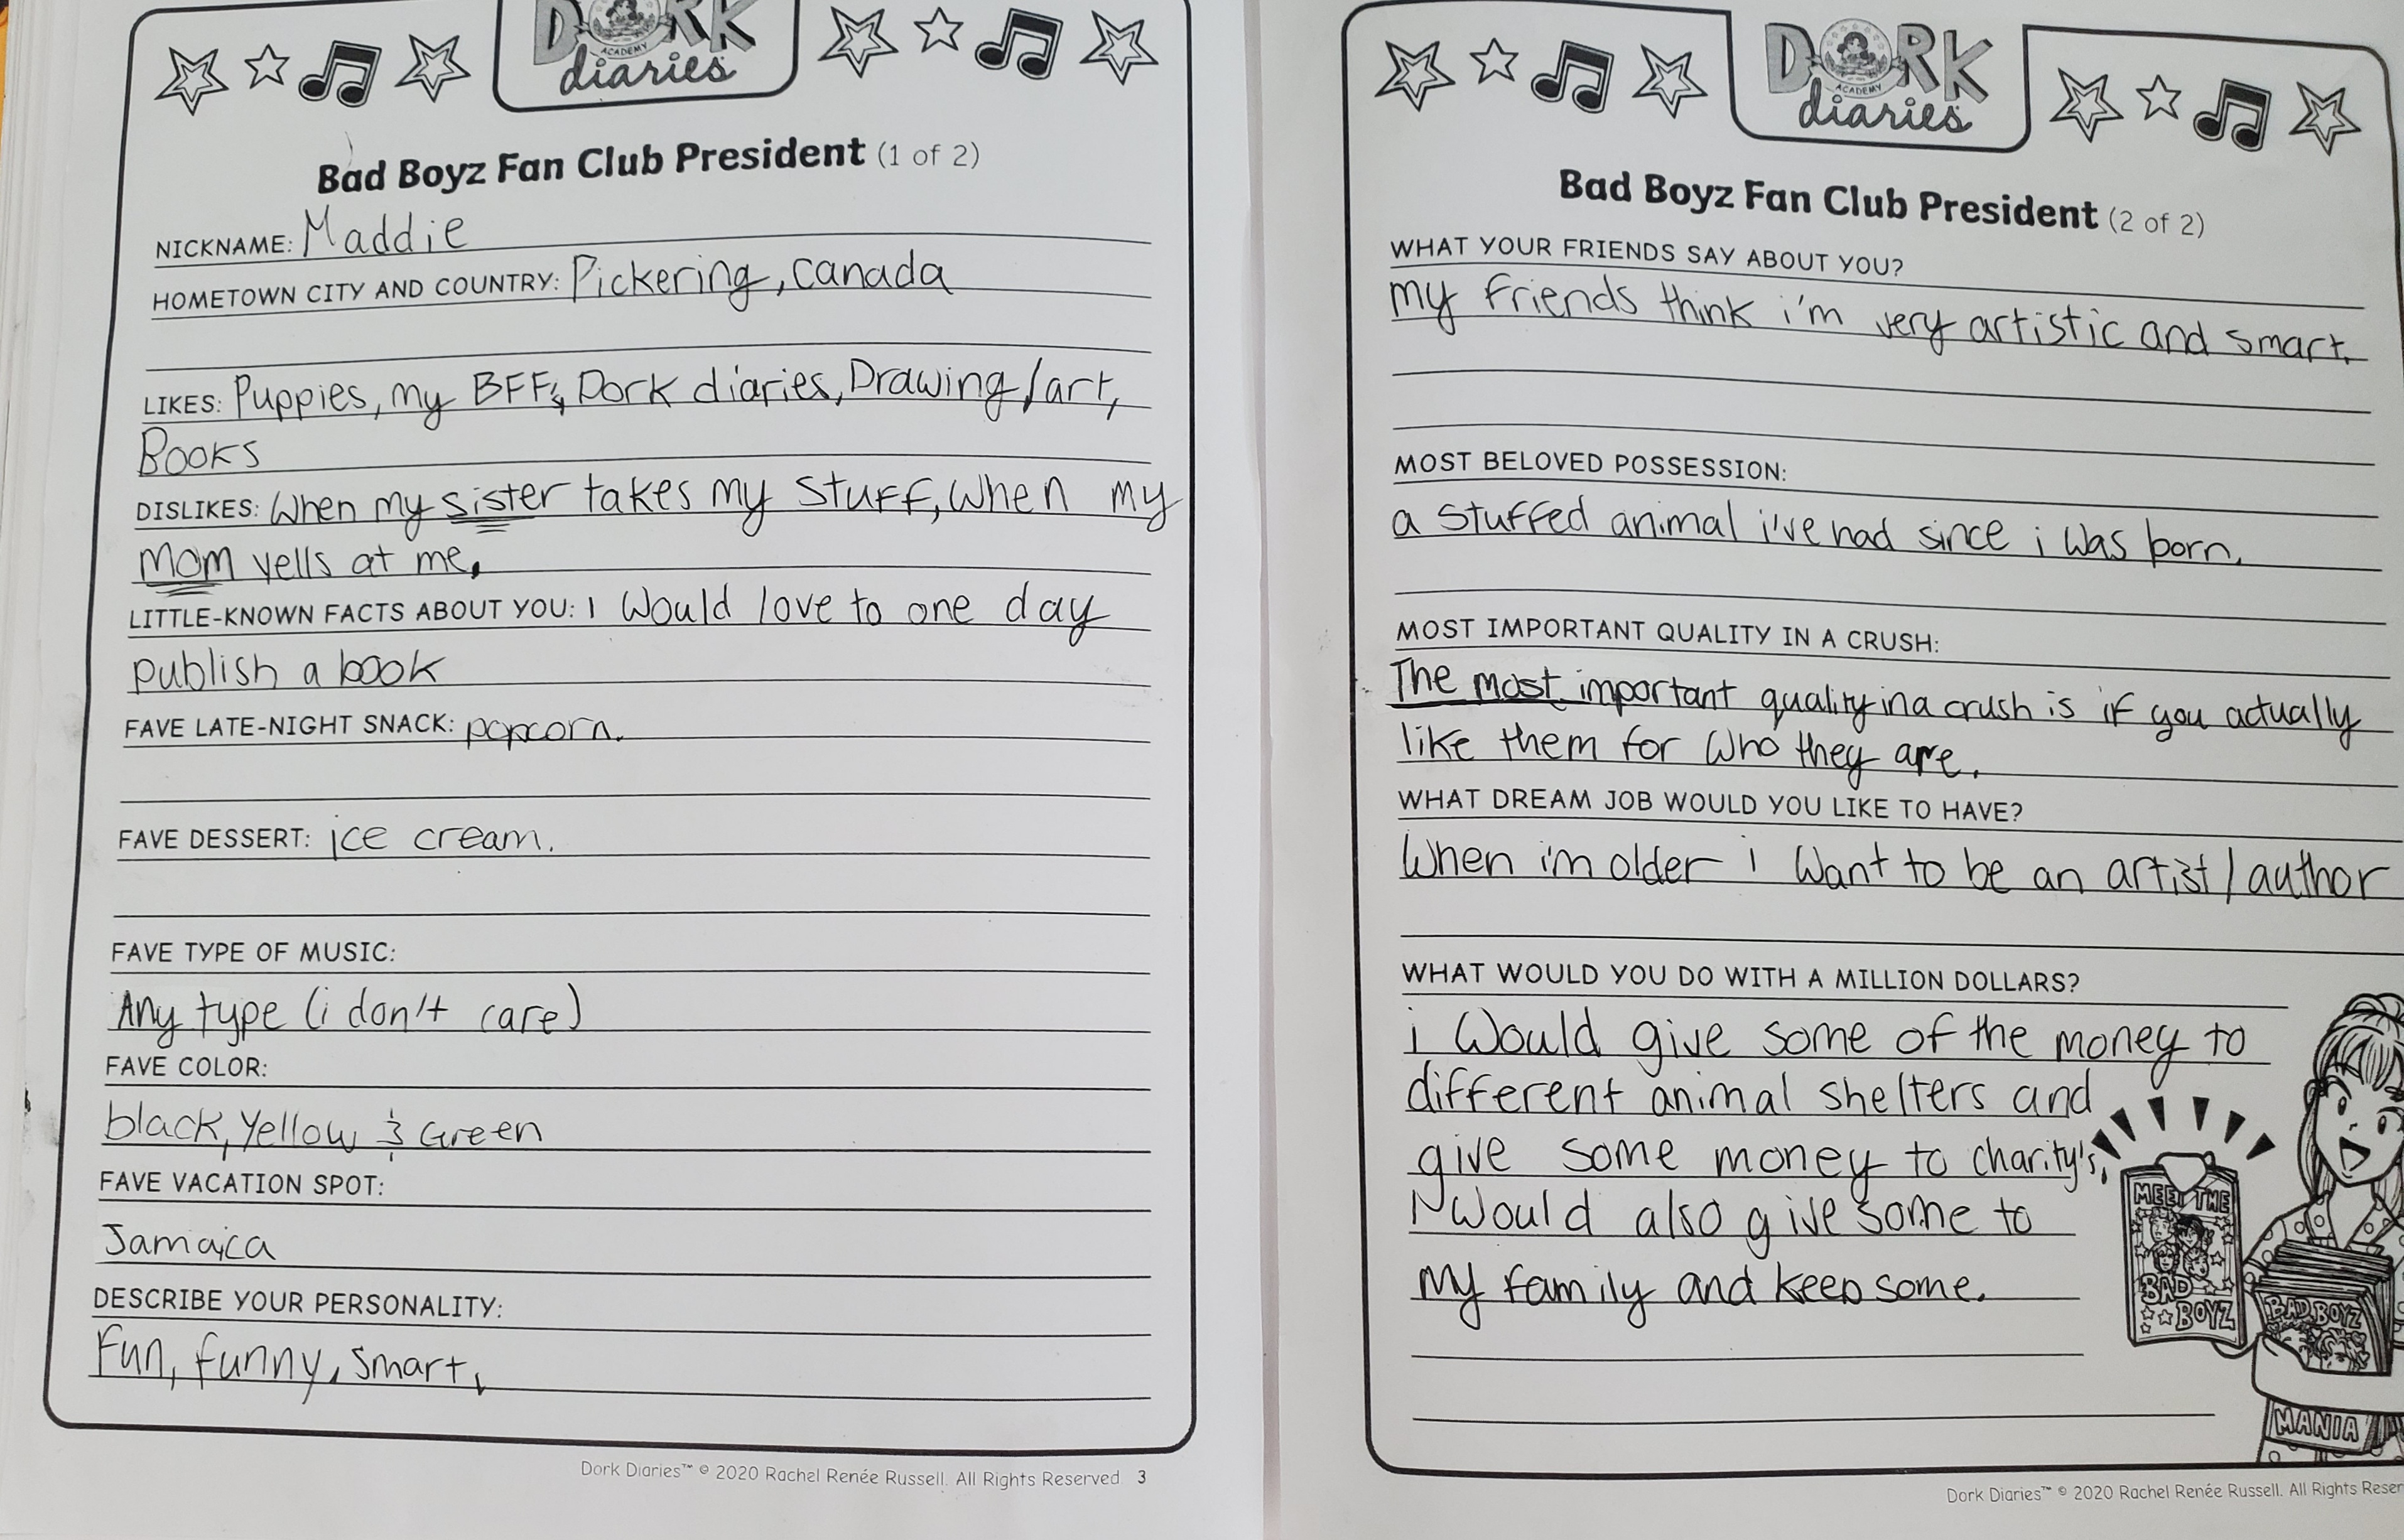 DORK
ACADEMY
diaries
Bad Boyz Fan Club President (1 of 2)
NICKNAME: Maddie
HOMETOWN CITY AND COUNTRY: Pickering, canada
LIKES: Puppies, my BFFs, Dork diaries, Drawing/art,
Books
DISLIKES: When my sister takes my stuff, When my
mom yells at me.
LITTLE-KNOWN FACTS ABOUT YOU: I would love to one day
publish a book
FAVE LATE-NIGHT SNACK: popcorn.
FAVE DESSERT: ice cream.
FAVE TYPE OF MUSIC:
Any type (i don't care)
FAVE COLOR:
black, yellow & Green
FAVE VACATION SPOT:
Jamaica
DESCRIBE YOUR PERSONALITY:
Fun, funny, smart,
Dork Diaries™ © 2020 Rachel Renée Russell. All Rights Reserved. 3
DORK
ACADEMY
diaries
Bad Boyz Fan Club President (2 of 2)
WHAT YOUR FRIENDS SAY ABOUT YOU?
my friends think i'm very artistic and smart.
MOST BELOVED POSSESSION:
a stuffed animal i've had since i was born.
MOST IMPORTANT QUALITY IN A CRUSH:
The most important quality in a crush is if you actually
like them for who they are.
WHAT DREAM JOB WOULD YOU LIKE TO HAVE?
When im older i want to be an artist/author
WHAT WOULD YOU DO WITH A MILLION DOLLARS?
i would give some of the money to
different animal shelters and
give some money to charity's,
I would also give some to
my family and keep some.
MEET THE
BAD
BOYZ
BAD BOYZ
MANIA
Dork Diaries™ © 2020 Rachel Renée Russell. All Rights Reser